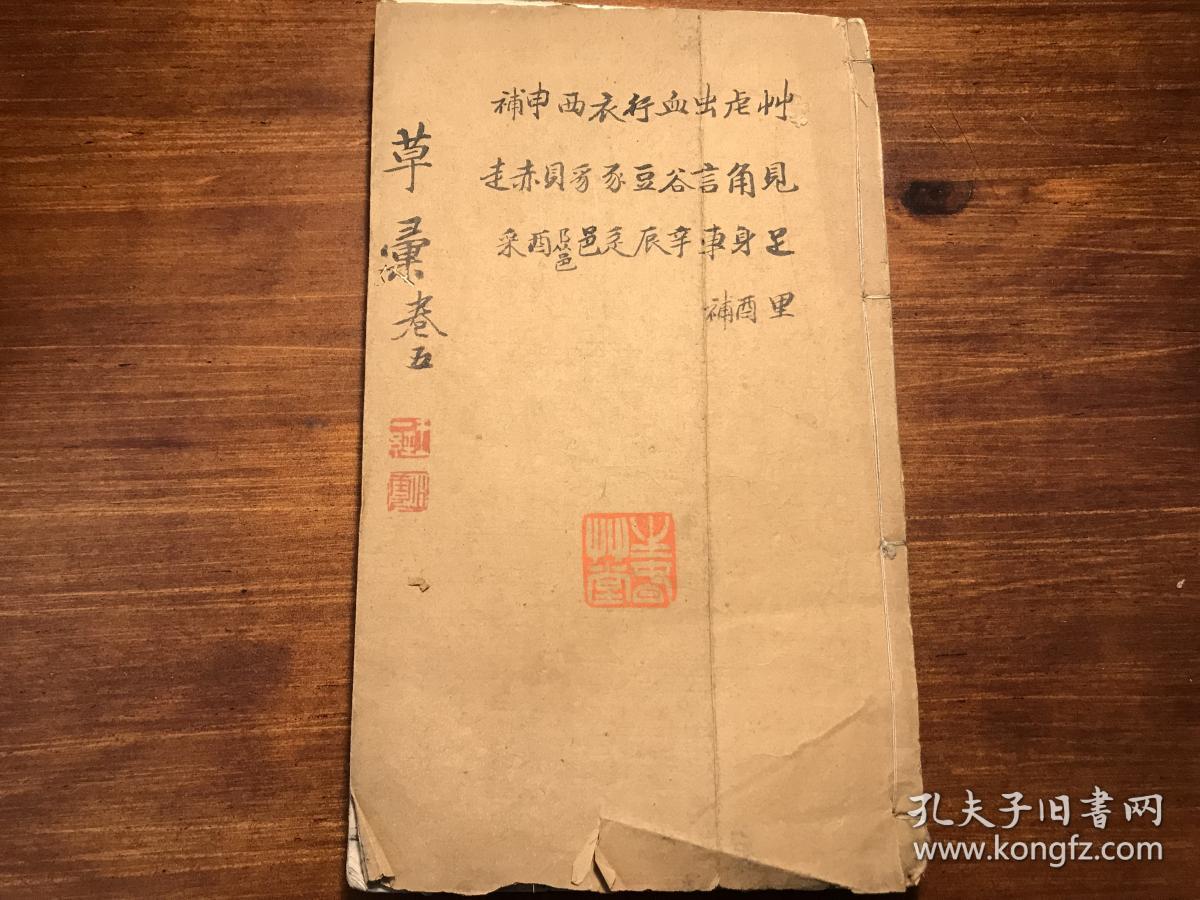 艸虍出血行衣西申補
見角言谷豆豕豸貝赤走
足身車辛辰辵邑酉釆
里酉補
草彙卷五
孔夫子旧书网
www.kongfz.com